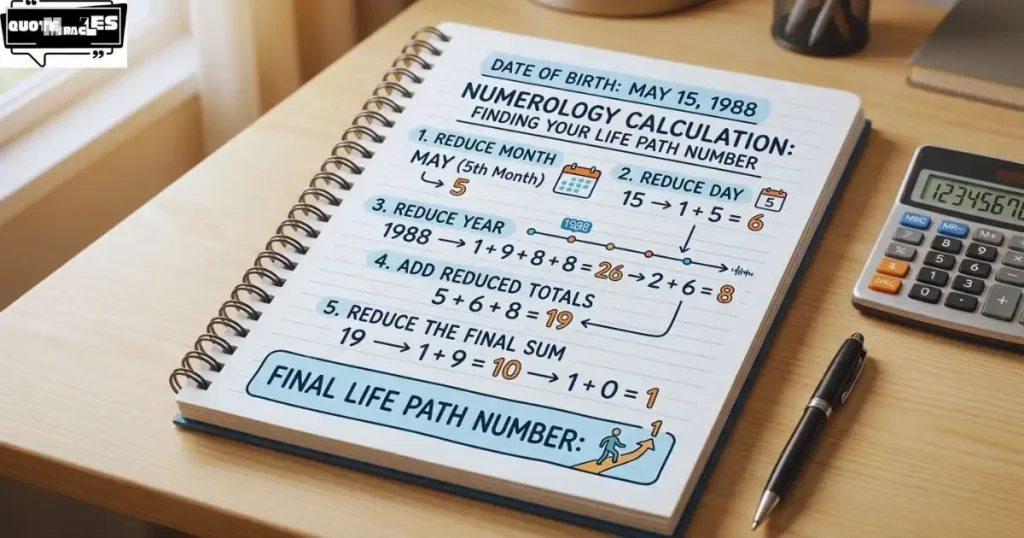 QUOTE MIRACLES
DATE OF BIRTH: MAY 15, 1988
NUMEROLOGY CALCULATION:
FINDING YOUR LIFE PATH NUMBER
1. REDUCE MONTH
MAY (5th Month)
5
2. REDUCE DAY
5
15 → 1 + 5 = 6
3. REDUCE YEAR
1988 → 1 + 9 + 8 + 8 = 26 → 2 + 6 = 8
4. ADD REDUCED TOTALS
5 + 6 + 8 = 19
5. REDUCE THE FINAL SUM
19 → 1 + 9 = 10 → 1 + 0 = 1
FINAL LIFE PATH NUMBER:
1
12345678
M+
8
9
5
6
3
0
+